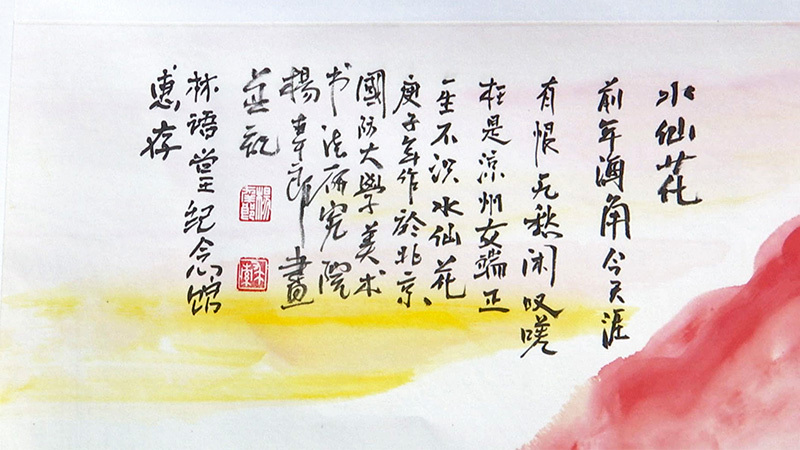 水仙花
前年海角今天涯
有恨无愁闲叹嗟
枉是凉州女端正
一生不识水仙花
庚子年作於北京、
國防大學美术
书法研究院
楊奉郎畫
並記
林语堂纪念馆
惠存